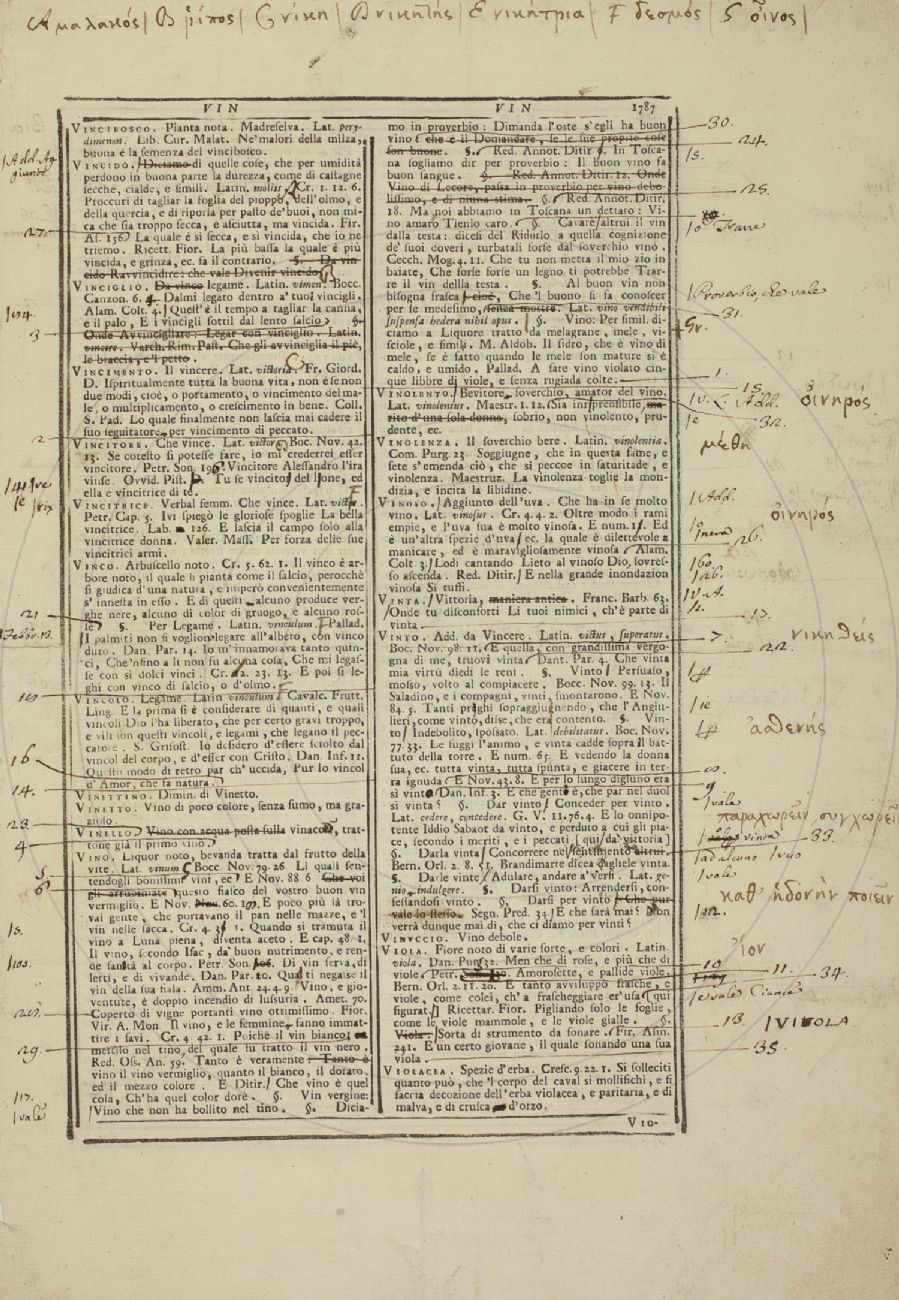 Α μαλακός | Β ῥίπος | C νίκη | D νικητής | Ε νικήτρια | F δεσμός | G οἶνος |
VIN
VIN
1787
VINCIBOSCO. Pianta nota. Madreselva. Lat. pery-
dimenon. Lib. Cur. Malat. Ne'malori della milza,
buona è la semenza del vincibosco.
VINCIDO. Diciamo di quelle cose, che per umidità
perdono in buona parte la durezza, come di castagne
secche, cialde, e simili. Latin. mollis. Cr. 1. 12. 6.
Proccuri di tagliar la foglia del pioppo, dell'olmo, e
della quercia, e di riporla per pasto de'buoi, non mi-
ca che sia troppo secca, e asciutta, ma vincida. Fir.
As. 156. La quale è sì secca, e sì vincida, che io ne
triemo. Ricett. Fior. La più bassa la quale è più
vincida, e grinza, ec. fa il contrario. §. Da vin-
cido Ravvincidire: che vale Divenir vincido
VINCIGLIO. Da vinco legame. Latin. vimen. Bocc.
Canzon. 6. 4. Dalmi legato dentro a' tuoi vincigli.
Alam. Colt. 4. Quest'è il tempo a tagliar la canna,
e il palo, E i vincigli sottil dal lento salcio §.
Onde Avvincigliare: Legar con vinciglio. Latin.
vincire. Varch. Rim. Past. Che gli avvinciglia il piè,
le braccia, e'l petto.
VINCIMENTO. Il vincere. Lat. victoria. Fr. Giord.
D. Ispiritualmente tutta la buona vita, non è se non
due modi, cioè, o portamento, o vincimento del ma-
le, o multiplicamento, o crescimento in bene. Coll.
S. Pad. Lo quale finalmente non lascia mai cadere il
suo seguitatore per vincimento di peccato.
VINCITORE. Che vince. Lat. victor. Boc. Nov. 42.
13. Se cotesto si potesse fare, io mi crederrei esser
vincitore. Petr. Son. 196. Vincitore Alessandro l'ira
vinse. Ovvid. Pist. Tu se vincitor del lione, ed
ella e vincitrice di te.
VINCITRICE. Verbal femm. Che vince. Lat. victrix
Petr. Cap. 5. Ivi spiegò le gloriose spoglie La bella
vincitrice. Lab. 126. E lascia il campo solo alla
vincitrice donna. Valer. Mass. Per forza delle sue
vincitrici armi.
VINCO. Arbuscello noto. Cr. 5. 62. 1. Il vinco è ar-
bore noto, il quale si pianta come il salcio, perocchè
si giudica d'una natura, e imperò convenientemente
s'innesta in esso. E di questi alcuno produce ver-
ghe nere, alcuno di color di gruogo, e alcuno ros-
se §. Per Legame. Latin. vinculum. Pallad.
I palmiti non si vogliono legare all'albero, con vinco
duro. Dan. Par. 14. Io m'innamorava tanto quin-
ci, Che'nfino a lì non fu alcuna cosa, Che mi legas-
se con sì dolci vinci. Cr. 2. 23. 13. E poi si le-
ghi con vinco di salcio, o d'olmo.
VINCOLO. Legame. Latin vinculum Cavalc. Frutt.
Ling. E la prima si è considerare di quanti, e quali
vincoli Dio l'ha liberato, che per certo gravi troppo,
e vili son questi vincoli, e legami, che legano il pec-
catore. S. Grisost. Io desidero d'essere sciolto dal
vincol del corpo, e d'esser con Cristo. Dan. Inf. 11.
Questo modo di retro par ch'uccida, Pur lo vincol
d'Amor, che fa natura.
VINETTINO. Dimin. di Vinetto.
VINETTO. Vino di poco colore, senza fumo, ma gra-
zioso.
VINELLO. Vino con acqua posta sulla vinaccia, trat-
tone già il primo vino.
VINO. Liquor noto, bevanda tratta dal frutto della
vite. Lat. vinum. Bocc. Nov. 79. 26 Li quali sen-
tendogli bonissimi vini, ec. E Nov. 88 6. Che voi
gli arrubiniate questo fiasco del vostro buon vin
vermiglio. E Nov. Nov. 60. 10. E poco più là tro-
vai gente, che portavano il pan nelle mazze, e'l
vin nelle sacca. Cr. 4. 3. 1. Quando si tramuta il
vino a Luna piena, diventa aceto. E cap. 48. 1.
Il vino, secondo Isac, dà buon nutrimento, e ren-
de sanità al corpo. Petr. Son. 106. Di vin serva, di
letti, e di vivande. Dan. Par. 10. Qual ti negasse il
vin della sua fiala. Amm. Ant. 24. 4. 9. Vino, e gio-
ventute, è doppio incendio di lussuria. Amet. 70.
Coperto di vigne portanti vino ottimissimo. Fior.
Vir. A. Mon Il vino, e le femmine, fanno immat-
tire i savi. Cr. 4. 42. 1. Poichè il vin bianco
messolo nel tino, del quale fu tratto il vin nero.
Red. Oss. An. 59. Tanto è veramente Tanto è
vino il vino vermiglio, quanto il bianco, il dorato,
ed il mezzo colore. E Ditir. Che vino è quel
cola, Ch'ha quel color dorè. §. Vin vergine:
Vino che non ha bollito nel tino. §. Dicia-
mo in proverbio: Dimanda l'oste s'egli ha buon
vino che è il Domandare, se le sue proprie cose
son buone. §. Red. Annot. Ditir. In Tosca-
na sogliamo dir per proverbio: Il buon vino fa
buon sangue. §. Red. Annot. Ditir. 12. Onde
Vino di Lecore, passa in proverbio per vino debo-
lissimo, e di niuna stima. §. Red. Annot. Ditir.
18. Ma noi abbiamo in Toscana un dettato: Vi-
no amaro Tienlo caro. §. Cavare altrui il vin
dalla testa: dicesi del Ridurlo a quella cognizione
de' suoi doveri, turbatali forse dal soverchio vino.
Cecch. Mog. 4. 11. Che tu non metta il mio zio in
baiate, Che forse forse un legno ti potrebbe Trar-
re il vin della testa. §. Al buon vin non
bisogna frasca cioè, Che'l buono si fa conoscer
per le medesimo, senza mostre. Lat. vino vendibili
suspensa hedera nihil opus. §. Vino: Per simil. di-
ciamo a Liquore tratto da melagrane, mele, vi-
sciole, e simili. M. Aldob. Il sidro, che è vino di
mele, se è fatto quando le mele son mature si è
caldo, e umido. Pallad. A fare vino violato cin-
que libbre di viole, e senza rugiada colte.
VINOLENTO. Bevitore soverchio, amator del vino.
Lat. vinolentus. Maestr. 1. 12. Sia irriprensibile, ma-
rito d'una sola donna, sobrio, non vinolento, pru-
dente, ec.
VINOLENZA. Il soverchio bere. Latin. vinolentia.
Com. Purg. 23. Soggiugne, che in questa fame, e
sete s'emenda ciò, che si peccoe in saturitade, e
vinolenza. Maestruz. La vinolenza toglie la mon-
dizia, e incita la libidine.
VINOSO. Aggiunto dell'uva. Che ha in se molto
vino. Lat. vinosus. Cr. 4. 4. 2. Oltre modo i rami
empie, e l'uva sua è molto vinosa. E num. 1. Ed
è un'altra spezie d'uva ec. la quale è dilettevole a
manicare, ed è maravigliosamente vinosa Alam.
Colt 3. Lodi cantando Lieto al vinoso Dio, sovres-
so ascenda. Red. Ditir. E nella grande inondazion
vinosa Si tuffi.
VINTA. Vittoria, maniera antica. Franc. Barb. 63.
Onde tu disconforti Li tuoi nimici, ch'è parte di
vinta.
VINTO. Add. da Vincere. Latin. victus, superatus.
Boc. Nov. 98. 11. E quella, con grandissima vergo-
gna di me, truovi vinta Dant. Par. 4. Che vinta
mia virtù diedi le reni. §. Vinto Persuaso,
mosso, volto al compiacere. Bocc. Nov. 99. 13. Il
Saladino, e i compagni, vinti, smontarono. E Nov.
84. 5. Tanti prieghi sopraggiugnendo, che l'Angiu-
lieri, come vinto, disse, che era contento. §. Vin-
to Indebolito, spossato. Lat. debilitatus. Boc. Nov.
77. 33. Le fuggì l'animo, e vinta cadde sopra il bat-
tuto della torre. E num. 65. E vedendo la donna
sua, ec. tutta vinta, tutta spunta, e giacere in ter-
ra ignuda E Nov. 43. 8. E per lo lungo digiuno era
sì vinto Dan. Inf. 3. E che gent'è, che par nel duol
sì vinta? §. Dar vinto Conceder per vinto.
Lat. cedere, concedere. G. V. 11. 76. 4. E lo onnipo-
tente Iddio Sabaot dà vinto, e perduto a cui gli pia-
ce, secondo i meriti, e i peccati [qui dà vittoria]
§. Darla vinta Concorrere nel sentimento altrui
Bern. Orl. 2. 8. 51. Brandimarte dicea dagliele vinta.
§. Darle vinte Adulare, andare a'versi. Lat. ge-
nio indulgere. §. Darsi vinto: Arrendersi, con-
fessandosi vinto. §. Darsi per vinto Che pur
vale lo stesso. Segn. Pred. 34. E che sarà mai? Non
verrà dunque mai dì, che ci diamo per vinti?
VINUCCIO. Vino debole.
VIOLA. Fiore noto di varie sorte, e colori. Latin.
viola. Dan. Purg. 32. Men che di rose, e più che di
viole. Petr. Amorosette, e pallide viole.
Bern. Orl. 2. 11. 20. E tanto avviluppo frasche, e
viole, come colei, ch'a frascheggiare er'usa [qui
figurat.] Ricettar. Fior. Pigliando solo le foglie,
come le viole mammole, e le viole gialle. §.
Viola. Sorta di strumento da sonare. Fir. Asin.
241. E un certo giovane, il quale sonando una sua
viola.
VIOLACEA. Spezie d'erba. Cresc. 9. 22. 1. Si solleciti
quanto può, che'l corpo del caval si mollifichi, e si
faccia decozione dell'erba violacea, e paritaria, e di
malva, e di crusca d'orzo.
VIO-
Add. Ag
giunto
27.
3
2
21
Febbr. 13.
16
14.
23.
4
5
6
29.
vale
30.
24.
25.
Proverbio, che vale
31.
Gr.
1.
15
32.
οἰνηρός
μέθη
Add.
οἰνηρός
26.
17
7.
22.
νικηθείς
ἀσθενής
9
vale
παραχωρεῖν συγχωρεῖν
vinta 33.
ad alcuno
vale
καθ' ἡδονὴν ποιεῖν
ἴον
10
11.
34.
13.
VIVOLA
35.